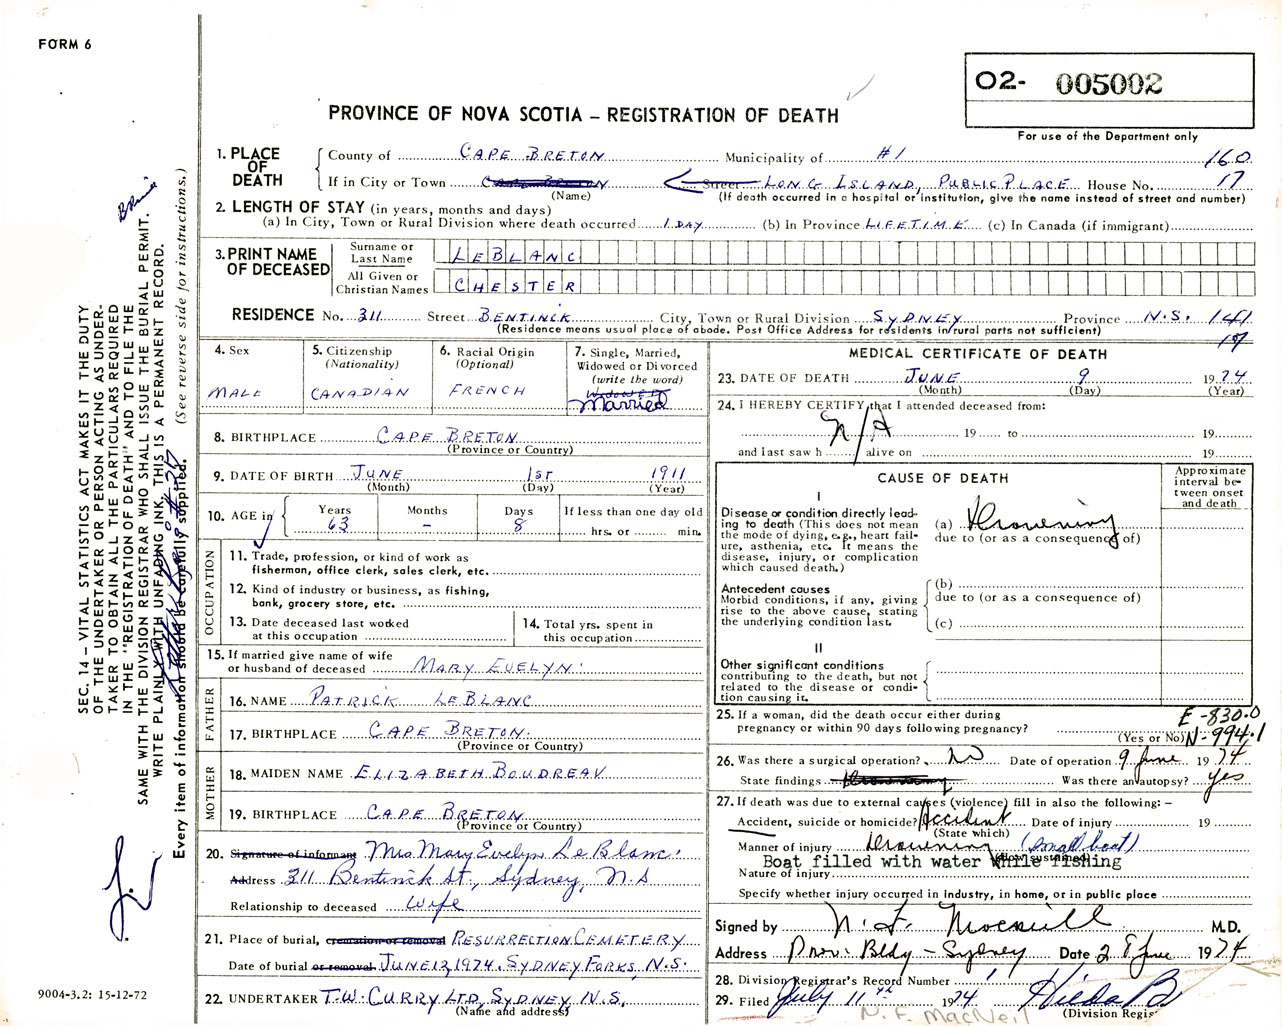 FORM 6
O2- 005002
For use of the Department only
PROVINCE OF NOVA SCOTIA – REGISTRATION OF DEATH
1. PLACE OF DEATH
County of CAPE BRETON Municipality of #1 160
If in City or Town CAPE BRETON Street LONG ISLAND, PUBLIC PLACE House No. 17
(Name) (If death occurred in a hospital or institution, give the name instead of street and number)
2. LENGTH OF STAY (in years, months and days)
(a) In City, Town or Rural Division where death occurred 1 DAY (b) In Province LIFETIME (c) In Canada (if immigrant)
3. PRINT NAME OF DECEASED
Surname or Last Name LEBLANC
All Given or Christian Names CHESTER
RESIDENCE No. 311 Street BENTINCK City, Town or Rural Division SYDNEY Province N.S. 141
(Residence means usual place of abode. Post Office Address for residents in rural parts not sufficient) 17
4. Sex
MALE
5. Citizenship
(Nationality)
CANADIAN
6. Racial Origin
(Optional)
FRENCH
7. Single, Married,
Widowed or Divorced
(write the word)
Married
8. BIRTHPLACE CAPE BRETON
(Province or Country)
9. DATE OF BIRTH JUNE 1st 1911
(Month) (Day) (Year)
10. AGE in Years Months Days If less than one day old
63 - 8 hrs. or min.
OCCUPATION
11. Trade, profession, or kind of work as
fisherman, office clerk, sales clerk, etc.
12. Kind of industry or business, as fishing,
bank, grocery store, etc.
13. Date deceased last worked
at this occupation
14. Total yrs. spent in
this occupation
15. If married give name of wife
or husband of deceased MARY EVELYN
FATHER
16. NAME PATRICK LEBLANC
17. BIRTHPLACE CAPE BRETON
(Province or Country)
MOTHER
18. MAIDEN NAME ELIZABETH BOUDREAU
19. BIRTHPLACE CAPE BRETON
(Province or Country)
20. Signature of informant Mrs Mary Evelyn LeBlanc
Address 311 Bentinck St., Sydney, N.S
Relationship to deceased Wife
21. Place of burial, cremation or removal RESURRECTION CEMETERY
Date of burial or removal JUNE 12, 1974, SYDNEY FORKS, N.S.
22. UNDERTAKER T.W. CURRY LTD, SYDNEY N.S.
(Name and address)
MEDICAL CERTIFICATE OF DEATH
23. DATE OF DEATH JUNE 9 1974
(Month) (Day) (Year)
24. I HEREBY CERTIFY that I attended deceased from:
N/A 19 to 19
and last saw h alive on 19
CAUSE OF DEATH
Approximate interval between onset and death
I
Disease or condition directly leading to death (This does not mean the mode of dying, e.g., heart failure, asthenia, etc. It means the disease, injury, or complication which caused death.)
(a) Drowning
due to (or as a consequence of)
Antecedent causes
Morbid conditions, if any, giving rise to the above cause, stating the underlying condition last.
(b)
due to (or as a consequence of)
(c)
II
Other significant conditions contributing to the death, but not related to the disease or condition causing it.
25. If a woman, did the death occur either during
pregnancy or within 90 days following pregnancy?
(Yes or No)
E-830.0
N-994.1
26. Was there a surgical operation? No Date of operation 9 June 1974
State findings Was there an autopsy? yes
27. If death was due to external causes (violence) fill in also the following: –
Accident, suicide or homicide? Accident Date of injury 19
(State which)
Manner of injury Drowning (small boat)
Boat filled with water while fishing
Nature of injury
Specify whether injury occurred in industry, in home, or in public place
Signed by M.D.
Address Prov. Bldg - Sydney Date 28 June 1974
28. Division Registrar's Record Number
29. Filed July 11th 1974 Hilda B
(Division Regis
N. F. MacNeil
SEC. 14 – VITAL STATISTICS ACT MAKES IT THE DUTY
OF THE UNDERTAKER OR PERSON ACTING AS UNDER-
TAKER TO OBTAIN ALL THE PARTICULARS REQUIRED
IN THE "REGISTRATION OF DEATH" AND TO FILE THE
SAME WITH THE DIVISION REGISTRAR WHO SHALL ISSUE THE BURIAL PERMIT.
WRITE PLAINLY WITH UNFADING INK. THIS IS A PERMANENT RECORD.
Every item of information should be carefully supplied. (See reverse side for instructions.)
9004-3.2: 15-12-72